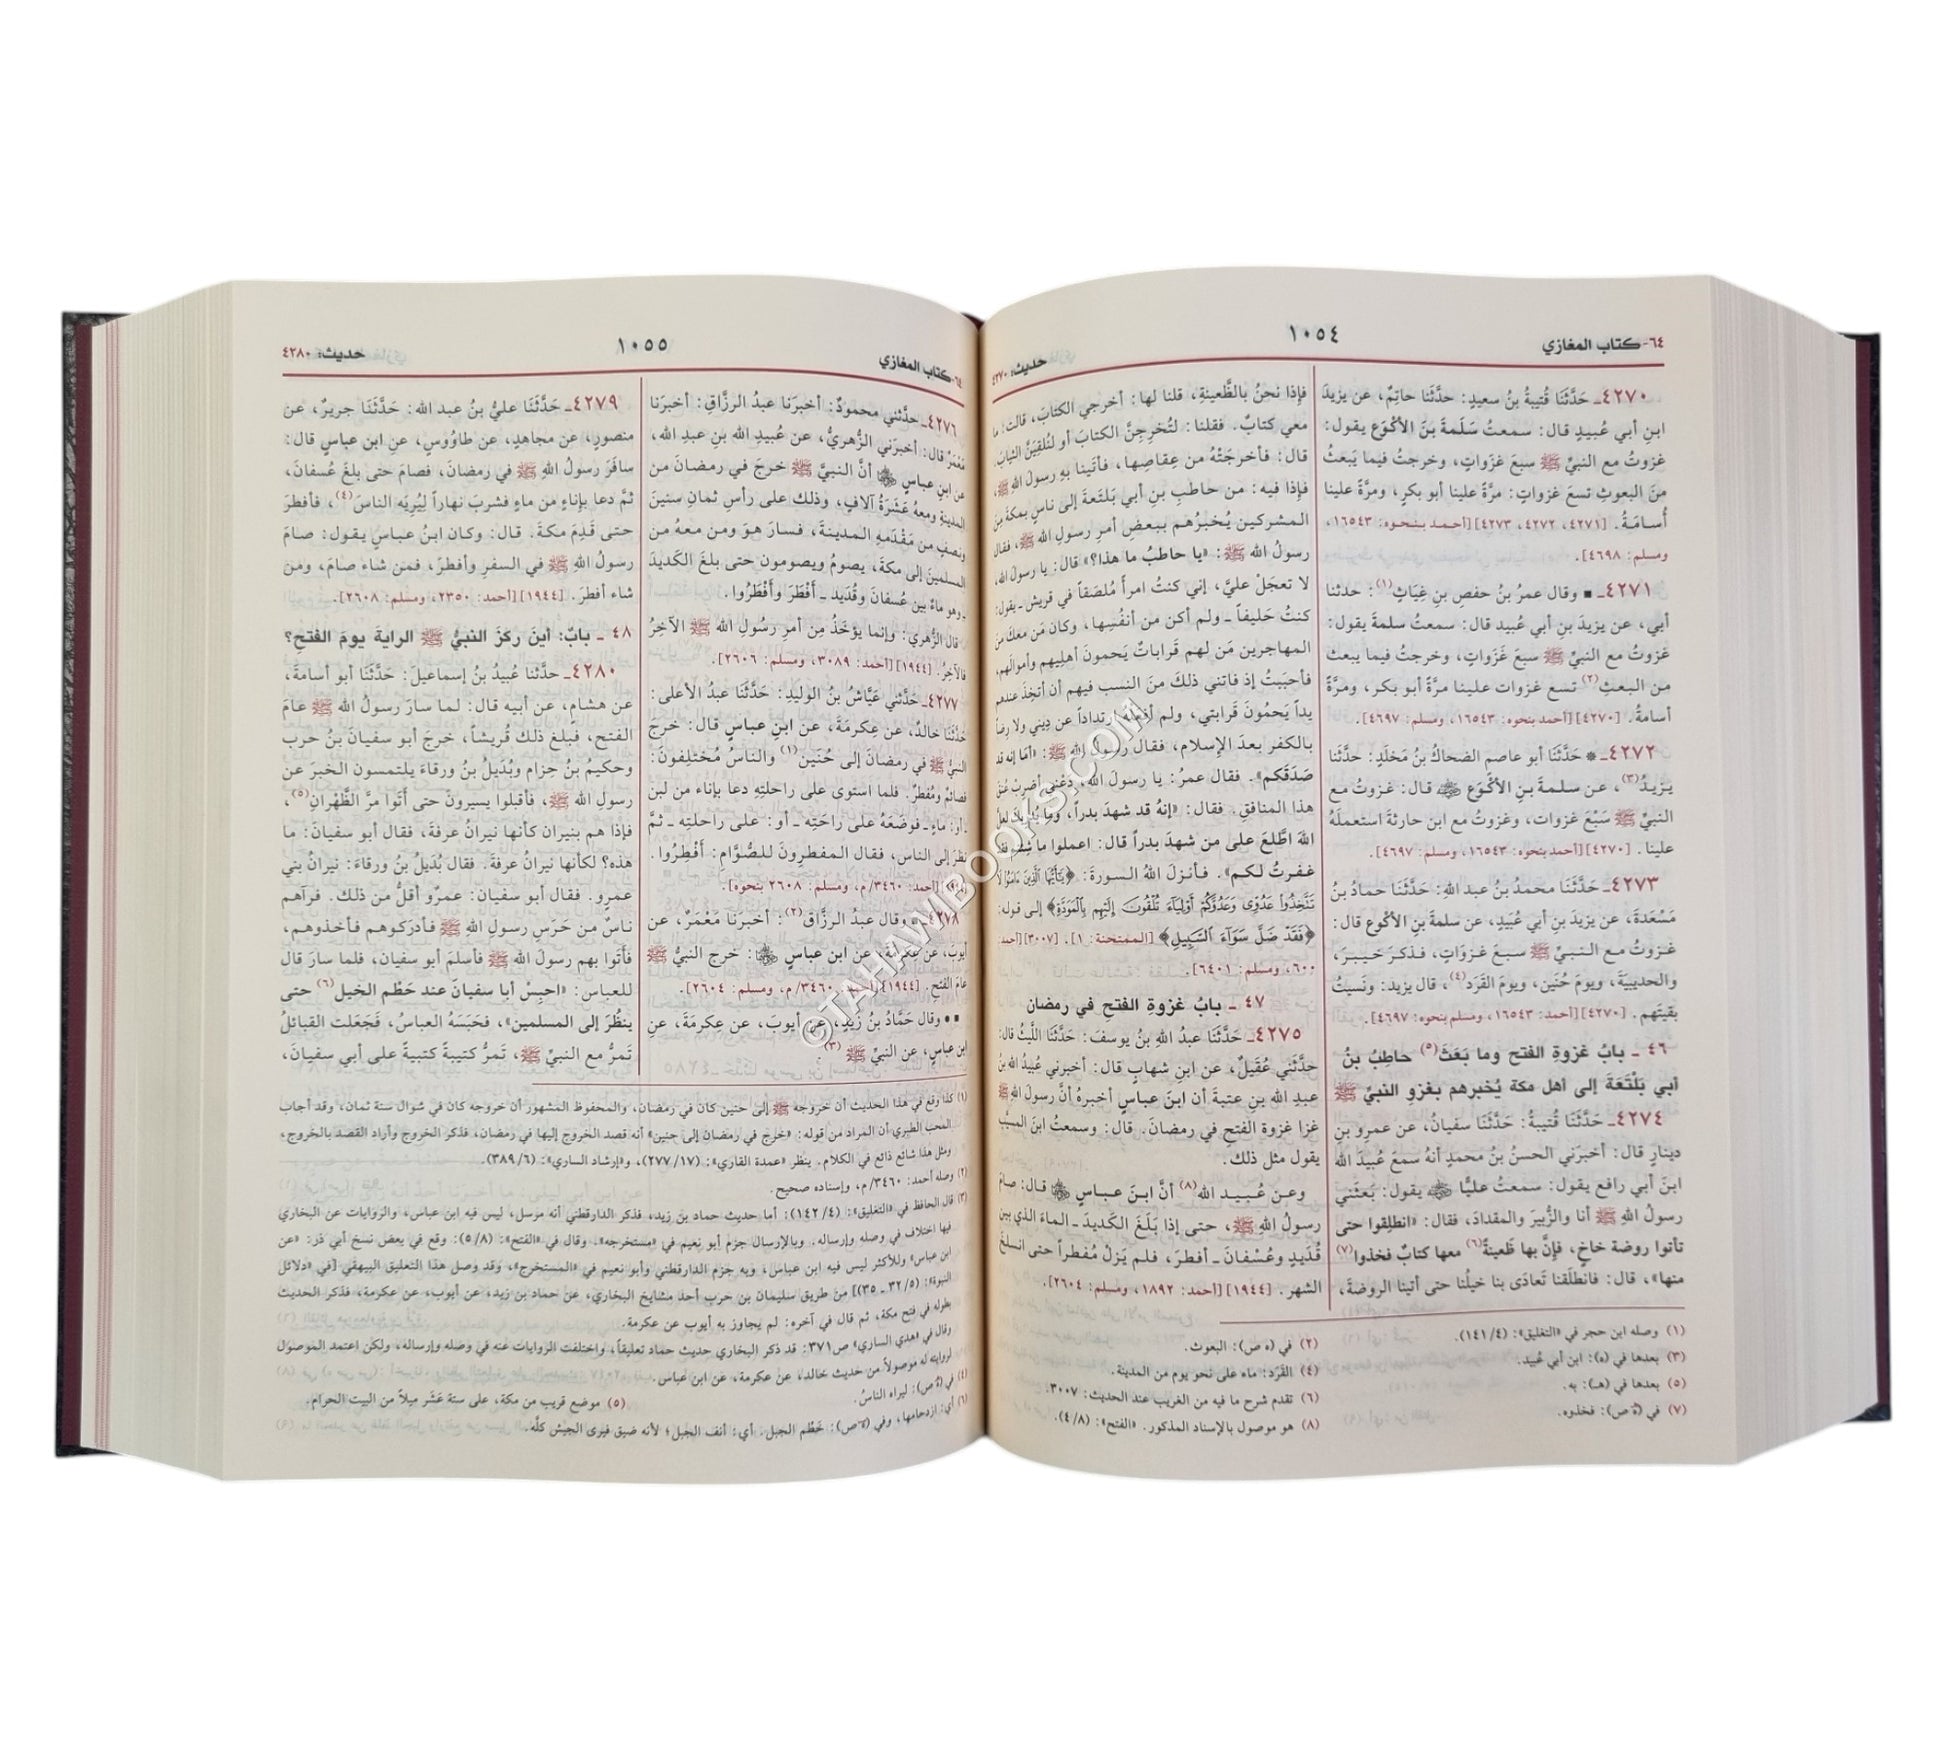 ٦٤- كتاب المغازي
١٠٥٤
حديث: ٤٢٧٠
٤٢٧٠ـ حَدَّثَنَا قُتيبةُ بنُ سعيدٍ: حدَّثَنا حاتِمٌ، عن يزيدَ
ابنِ أبي عُبيدٍ قال: سمعتُ سَلَمةَ بنَ الأكْوَعِ يقول:
غزَوتُ مع النبيِّ ﷺ سبعَ غزَواتٍ، وخرجتُ فيما يَبعَثُ
منَ البعوثِ تسعَ غزَواتٍ: مرَّةً علينا أبو بكرٍ، ومرَّةً علينا
أُسامَةُ. [٤٢٧١، ٤٢٧٢، ٤٢٧٣] [أحمد بنحوه: ١٦٥٤٣،
ومسلم: ٤٦٩٨].
٤٢٧١ـ ■ وقال عمرُ بنُ حفصِ بنِ غِيَاثٍ(١): حدثنا
أبي، عن يزيدَ بنِ أبي عُبيد قال: سمعتُ سلمةَ يقول:
غزَوتُ مع النبيِّ ﷺ سبعَ غَزَواتٍ، وخرجتُ فيما يبعث
من البعثِ(٢) تسع غزوات علينا مرَّةً أبو بكر، ومرَّةً
أسامةُ. [٤٢٧٠] [أحمد بنحوه: ١٦٥٤٣، ومسلم: ٤٦٩٧].
٤٢٧٢ـ * حَدَّثَنَا أبو عاصم الضحاكُ بنُ مَخلَدٍ: حدَّثَنا
يزيدُ(٣)، عن سلمةَ بنِ الأكْوَعِ ﷺ قال: غزوتُ مع
النبيِّ ﷺ سَبْعَ غزوات، وغزوتُ مع ابن حارثةَ استعملَهُ
علينا. [٤٢٧٠] [أحمد بنحوه: ١٦٥٤٣، ومسلم: ٤٦٩٧].
٤٢٧٣ـ حَدَّثَنَا محمدُ بنُ عبد اللهِ: حَدَّثَنا حمادُ بنُ
مَسْعَدَةَ، عن يزيدَ بنِ أبي عُبَيدٍ، عن سلمةَ بنِ الأكْوعِ قال:
غزوتُ مع النبيِّ ﷺ سبعَ غزَواتٍ، فذكرَ خيبرَ،
والحديبيةَ، ويومَ حُنَينٍ، ويومَ القَرَدِ(٤)، قال يزيد: ونَسيتُ
بقيَّتَهم. [٤٢٧٠] [أحمد: ١٦٥٤٣، ومسلم بنحوه: ٤٦٩٧].
٤٦ ـ بابُ غزوةِ الفتحِ وما بَعَثَ(٥) حاطِبُ بنُ
أبي بَلْتَعَةَ إلى أهل مكة يُخبرهم بغزو النبيِّ ﷺ
٤٢٧٤ـ حَدَّثَنَا قُتيبةُ: حَدَّثَنا سفيانُ، عن عمرِو بنِ
دينارٍ قال: أخبرَني الحسنُ بنُ محمدٍ أنهُ سمعَ عُبيدَ الله
ابنَ أبي رافع يقول: سمعتُ عليًّا ﷺ يقول: بَعَثَني
رسولُ اللهِ ﷺ أنا والزُّبيرَ والمقدادَ، فقال: «انطلِقوا حتى
تأتوا روضةَ خاخٍ، فإنَّ بها ظَعينةً(٦) معها كتابٌ فخذوا(٧)
منها»، قال: فانطلَقنا تَعادَى بنا خيلُنا حتى أتينا الروضةَ،
فإذا نحنُ بالظَّعينةِ، قلنا لها: أخرجي الكتابَ، قالت: ما
معي كتابٌ. فقلنا: لتُخرِجِنَّ الكتابَ أو لنُلقِيَنَّ الثيابَ،
قال: فأخرجَتْهُ من عِقاصِها، فأتَينا بهِ رسولَ اللهِ ﷺ،
فإذا فيه: من حاطبِ بنِ أبي بَلتَعةَ إلى ناسٍ بمكةَ منَ
المشركين يُخبرُهم ببعضِ أمرِ رسولِ اللهِ ﷺ، فقال
رسولُ الله ﷺ: «يا حاطبُ ما هذا؟» قال: يا رسولَ الله،
لا تعجَلْ عليَّ، إني كنتُ امرأً مُلصَقاً في قريش ـ يقول:
كنتُ حَليفاً ـ ولم أكن من أنفُسِها، وكان مَن معكَ منَ
المهاجرين مَن لهم قَراباتٌ يَحمونَ أهليهم وأموالَهم،
فأحبَبتُ إذ فاتني ذلكَ منَ النسب فيهم أن أتخِذَ عندهم
يداً يَحمُونَ قرابتي، ولم أفعَلْهُ ارتداداً عن دِيني ولا رِضاً
بالكفر بعدَ الإسلام، فقال رسولُ الله ﷺ: «أمَا إنه قد
صَدَقَكم». فقال عمرُ: يا رسولَ الله، دَعْني أضرِبْ عُنقَ
هذا المنافقِ. فقال: «إنهُ قد شهدَ بدراً، وما يُدريكَ لعلَّ
اللهَ اطَّلعَ على من شهدَ بدراً قال: اعملوا ما شئتم فقد
غفرتُ لكم». فأنزلَ اللهُ السورةَ: ﴿يَٰٓأَيُّهَا الَّذِينَ ءَامَنُوا لَا
تَتَّخِذُوا عَدُوِّى وَعَدُوَّكُمْ أَوْلِيَآءَ تُلْقُونَ إِلَيْهِم بِالْمَوَدَّةِ﴾ إلى قوله:
﴿فَقَدْ ضَلَّ سَوَآءَ السَّبِيلِ﴾ [الممتحنة: ١]. [٣٠٠٧] [أحمد:
٦٠٠، ومسلم: ٦٤٠١].
٤٧ ـ بابُ غزوةِ الفتحِ في رمضان
٤٢٧٥ـ حَدَّثَنَا عبدُ اللهِ بنُ يوسفَ: حَدَّثَنا الليثُ قال:
حدَّثَني عُقَيلٌ، عن ابنِ شهابٍ قال: أخبرني عُبيدُ الله بنُ
عبدِ الله بنِ عتبةَ أن ابنَ عباسٍ أخبرهُ أنَّ رسولَ اللهِ ﷺ
غزا غزوةَ الفتحِ في رمضانَ. قال: وسمعتُ ابنَ المسيَّب
يقول مثل ذلك.
وعن عُبيد الله(٨) أنَّ ابنَ عباسٍ ﷺ قال: صامَ
رسولُ اللهِ ﷺ، حتى إذا بَلَغَ الكَديدَ ـ الماءَ الذي بين
قُدَيدٍ وعُسْفانَ ـ أفطرَ، فلم يَزلْ مُفطراً حتى انسلخَ
الشهر. [١٩٤٤] [أحمد: ١٨٩٢، ومسلم: ٢٦٠٤].
(١) وصله ابن حجر في «التغليق»: (١٤١/٤).
(٢) في (ه ص): البعوث.
(٣) بعدها في (ه): ابن أبي عُبيد.
(٤) القَرَد: ماء على نحو يوم من المدينة.
(٥) بعدها في (هـ): به.
(٦) تقدم شرح ما فيه من الغريب عند الحديث: ٣٠٠٧.
(٧) في (ه ص): فخذوه.
(٨) هو موصول بالإسناد المذكور. «الفتح»: (٤/٨).
٦٤- كتاب المغازي
١٠٥٥
حديث: ٤٢٨٠
٤٢٧٦ـ حدَّثني محمودٌ: أخبرَنا عبدُ الرزَّاقِ: أخبرَنا
مَعْمَرٌ قال: أخبرَني الزُّهريُّ، عن عُبيدِ الله بنِ عبدِ الله،
عنِ ابنِ عباسٍ ﷺ أنَّ النبيَّ ﷺ خرجَ في رمضانَ من
المدينةِ ومعهُ عَشَرَةُ آلافٍ، وذلك على رأسِ ثمانِ سنينَ
ونصفٍ من مَقْدَمِهِ المدينةَ، فسارَ هوَ ومن معهُ من
المسلمينَ إلى مكةَ، يصومُ ويصومون حتى بلغَ الكَديدَ
ـ وهو ماءٌ بين عُسفانَ وقُدَيد ـ أفْطَرَ وأفْطَرُوا.
قال الزُّهري: وإنما يؤخَذُ مِن أمرِ رسُولِ اللهِ ﷺ الآخِرُ
فالآخِرُ. [١٩٤٤] [أحمد: ٣٠٨٩، ومسلم: ٢٦٠٦].
٤٢٧٧ـ حَدَّثَني عَيَّاشُ بنُ الوليدِ: حَدَّثَنَا عبدُ الأعلى:
حَدَّثَنَا خالدٌ، عن عِكرمَةَ، عن ابنِ عباسٍ قال: خرجَ
النبيُّ ﷺ في رمضانَ إلى حُنَينٍ(١) والناسُ مُختلِفونَ:
فصائمٌ ومُفطرٌ. فلما استوى على راحلتِهِ دعا بإناء من لبنٍ
ـ أو: ماءٍ ـ فوضَعَهُ على راحَتِه ـ أو: على راحلتِه ـ ثمَّ
نظرَ إلى الناس، فقال المفطرونَ للصُّوَّامِ: أَفْطِرُوا.
[١٩٤٤] [أحمد: ٣٤٦٠/م، ومسلم: ٢٦٠٨ بنحوه].
٤٢٧٨ـ ■ وقال عبدُ الرزَّاق(٢): أخبرَنا مَعْمَرٌ، عن
أيوبَ، عن عِكرمةَ، عن ابنِ عباسٍ ﷺ: خرج النبيُّ ﷺ
عامَ الفتحِ. [١٩٤٤] [أحمد: ٣٤٦٠/م، ومسلم: ٢٦٠٤].
■ • وقال حَمَّادُ بنُ زيدٍ، عن أيوبَ، عن عِكرمَةَ، عنِ
ابنِ عباسٍ، عن النبيِّ ﷺ(٣).
٤٢٧٩ـ حَدَّثَنَا عليُّ بنُ عبد الله: حَدَّثَنَا جريرٌ، عن
منصورٍ، عن مجاهدٍ، عن طاوُوسٍ، عن ابنِ عباسٍ قال:
سافَرَ رسولُ اللهِ ﷺ في رمضانَ، فصامَ حتى بلغَ عُسفانَ،
ثمَّ دعا بإناءٍ من ماءٍ فشربَ نهاراً لِيُرِيَه الناسَ(٤)، فأفطرَ
حتى قَدِمَ مكةَ. قال: وكان ابنُ عباسٍ يقول: صامَ
رسولُ اللهِ ﷺ في السفرِ وأفطرَ، فمن شاء صامَ، ومن
شاء أفطرَ. [١٩٤٤] [أحمد: ٢٣٥٠، ومسلم: ٢٦٠٨].
٤٨ ـ بابٌ: أينَ ركَزَ النبيُّ ﷺ الرايةَ يومَ الفتحِ؟
٤٢٨٠ـ حدَّثَنا عُبيدُ بنُ إسماعيلَ: حَدَّثَنَا أبو أسامةَ،
عن هشامٍ، عن أبيه قال: لما سارَ رسولُ الله ﷺ عامَ
الفتحِ، فبلغ ذلكَ قُريشاً، خرجَ أبو سفيانَ بنُ حرب
وحكيمُ بنُ حزامٍ وبُدَيلُ بنُ ورقاءَ يلتمسون الخبرَ عن
رسولِ الله ﷺ، فأقبلوا يسيرونَ حتى أتَوا مرَّ الظَّهْرانِ(٥)،
فإذا هم بنيران كأنها نيرانُ عرفةَ، فقال أبو سفيانَ: ما
هذه؟ لكأنها نيرانُ عرفةَ. فقال بُدَيلُ بنُ ورقاءَ: نيرانُ بني
عمرٍو. فقال أبو سفيان: عمرٌو أقلُّ من ذلك. فرآهم
ناسٌ من حَرَسِ رسولِ اللهِ ﷺ فأدرَكوهم فأخذوهم،
فأتَوا بهم رسولَ اللهِ ﷺ فأسلمَ أبو سفيان، فلما سارَ قال
للعباس: «احبِسْ أبا سفيانَ عند حَطْم الخيل(٦) حتى
ينظُرَ إلى المسلمين»، فحَبَسَهُ العباسُ، فَجَعَلت القبائلُ
تَمرُّ مع النبيِّ ﷺ، تَمرُّ كتيبةً كتيبةً على أبي سفيانَ،
(١) كذا وقع في هذا الحديث أن خروجه ﷺ إلى حنين كان في رمضان، والمحفوظ المشهور أن خروجه كان في شوال سنة ثمان، وقد أجاب
المحب الطبري أن المراد من قوله: «خرج في رمضان إلى حنين» أنه قصد الخروج إليها في رمضان، فذكر الخروج وأراد القصد بالخروج،
ومثل هذا شائع ذائع في الكلام. ينظر «عمدة القاري»: (٢٧٧/١٧)، و«إرشاد الساري»: (٣٨٩/٦).
(٢) وصله أحمد: ٣٤٦٠/م، وإسناده صحيح.
(٣) قال الحافظ في «التغليق»: (١٤٢/٤): أما حديث حماد بن زيد، فذكر الدارقطني أنه مرسل، ليس فيه ابن عباس، والروايات عن البخاري
فيها اختلاف في وصله وإرساله. وبالإرسال جزم أبو نعيم في «مستخرجه». وقال في «الفتح»: (٥/٨): وقع في بعض نسخ أبي ذر: «عن
ابن عباس» وللأكثر ليس فيه ابن عباس، وبه جزم الدارقطني وأبو نعيم في «المستخرج»، وقد وصل هذا التعليق البيهقي [في «دلائل
النبوة»: (٣٢/٥ ـ ٣٥)] من طريق سليمان بن حرب أحد مشايخ البخاري، عن حماد بن زيد، عن أيوب، عن عكرمة، فذكر الحديث
بطوله في فتح مكة، ثم قال في آخره: لم يجاوز به أيوب عن عكرمة.
وقال في «هدي الساري» ص٣٧١: قد ذكر البخاري حديث حماد تعليقاً، واختلفت الروايات عنه في وصله وإرساله، ولكن اعتمد الموصول
لروايته له موصولاً من حديث خالد، عن عكرمة، عن ابن عباس.
(٤) في (ه ص): ليراه الناسُ.
(٥) موضع قريب من مكة، على ستة عَشَر ميلاً من البيت الحرام.
(٦) أي: ازدحامها، وفي (ه ص): خَطْم الجبل. أي: أنف الجبل؛ لأنه ضيق فيرى الجيش كلُّه.
©TAHAWIBOOKS.COM